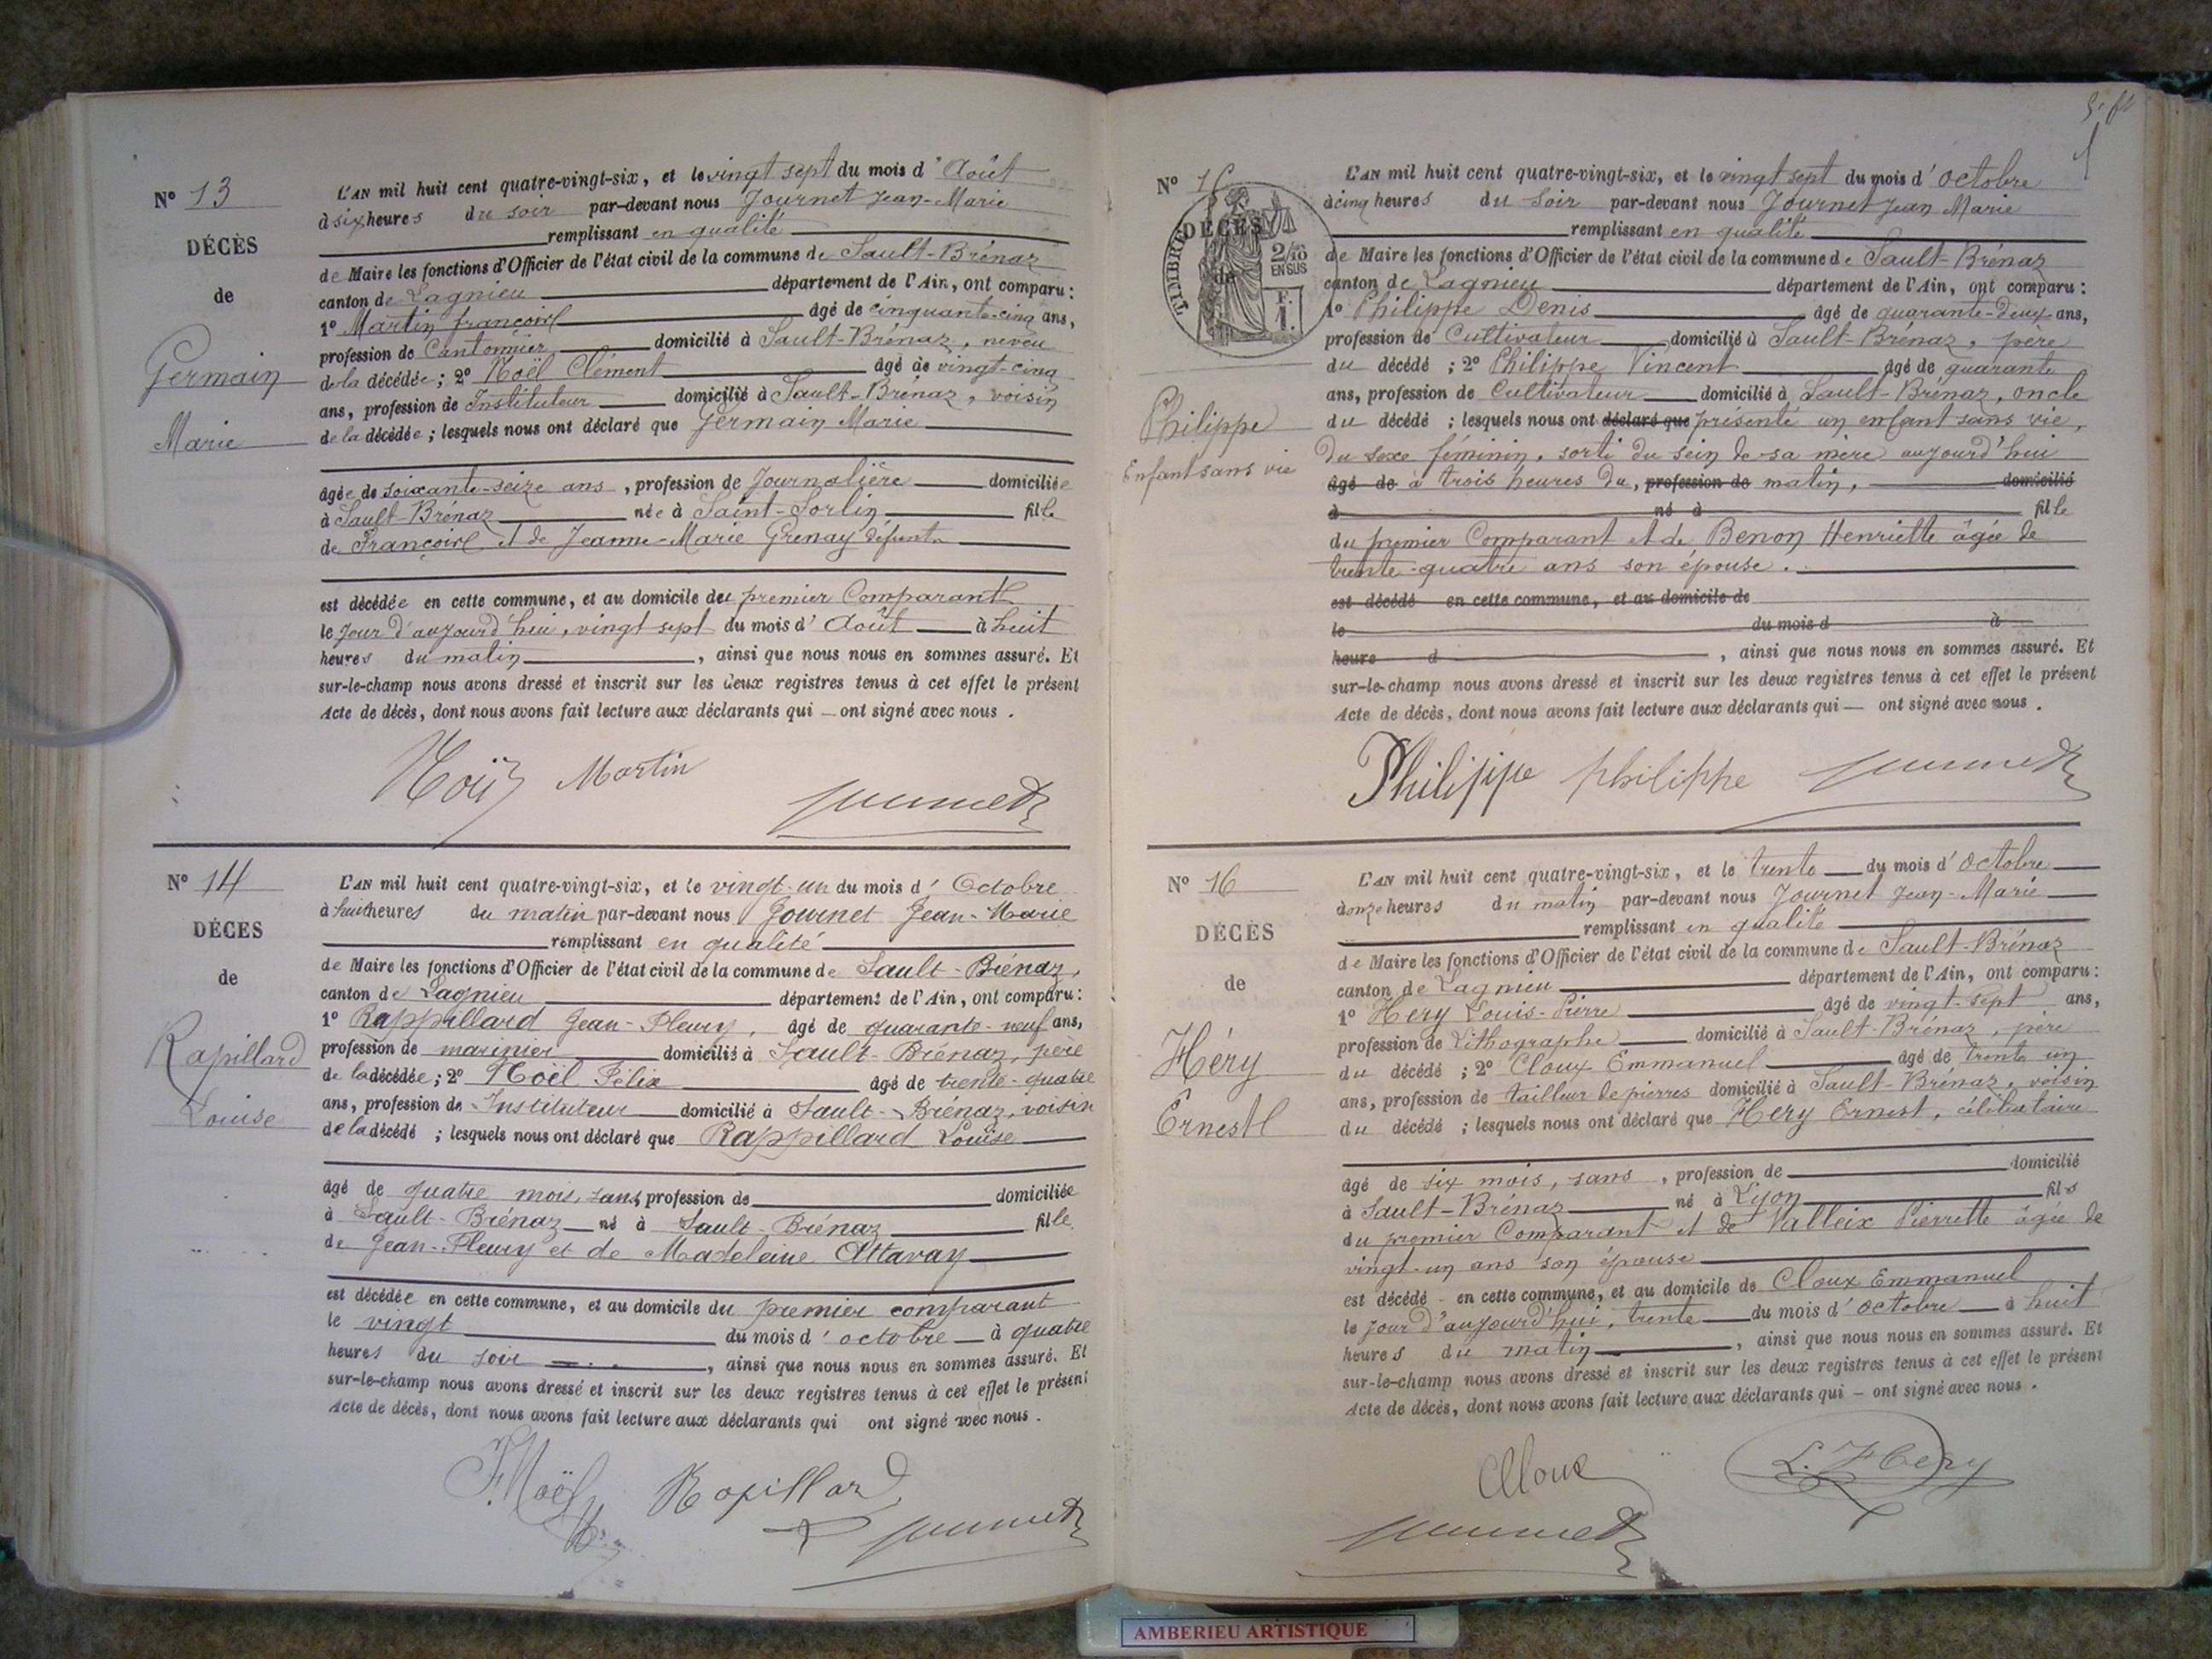 N° 13
DÉCÈS
de
Germain
Marie
L'AN mil huit cent quatre-vingt-six, et le vingt sept du mois d'Août
à six heures du soir par-devant nous Journet Jean-Marie
remplissant en qualité
de Maire les fonctions d'Officier de l'état civil de la commune de Sault-Brénaz
canton de Lagnieu département de l'Ain, ont comparu :
1° Martin François âgé de cinquante-cinq ans,
profession de Cantonnier domicilié à Sault-Brénaz, neveu
de la décédée ; 2° Noël Clément âgé de vingt-cinq
ans, profession de Instituteur domicilié à Sault-Brénaz, voisin
de la décédée ; lesquels nous ont déclaré que Germain Marie
âgée de soixante-seize ans, profession de Journalière domiciliée
à Sault-Brénaz née à Saint-Sorlin fille
de François et de Jeanne-Marie Grenay défunts
est décédée en cette commune, et au domicile du premier Comparant
le jour d'aujourd'hui, vingt sept du mois d'Août à huit
heures du matin, ainsi que nous nous en sommes assuré. Et
sur-le-champ nous avons dressé et inscrit sur les deux registres tenus à cet effet le présent
Acte de décès, dont nous avons fait lecture aux déclarants qui — ont signé avec nous.
Noël Martin
Journet
N° 14
DÉCÈS
de
Rapillard
Louise
L'AN mil huit cent quatre-vingt-six, et le vingt-un du mois d'Octobre
à huit heures du matin par-devant nous Journet Jean-Marie
remplissant en qualité
de Maire les fonctions d'Officier de l'état civil de la commune de Sault-Brénaz,
canton de Lagnieu département de l'Ain, ont comparu :
1° Rappillard Jean-Fleury, âgé de quarante-neuf ans,
profession de marinier domicilié à Sault-Brénaz, père
de la décédée ; 2° Noël Félix âgé de trente-quatre
ans, profession de Instituteur domicilié à Sault-Brénaz, voisin
de la décédé ; lesquels nous ont déclaré que Rappillard Louise
âgé de quatre mois, sans profession de domiciliée
à Sault-Brénaz né à Sault-Brénaz fille
de Jean-Fleury et de Madeleine Attavay
est décédée en cette commune, et au domicile du premier comparant
le vingt du mois d'octobre à quatre
heures du soir, ainsi que nous nous en sommes assuré. Et
sur-le-champ nous avons dressé et inscrit sur les deux registres tenus à cet effet le présent
Acte de décès, dont nous avons fait lecture aux déclarants qui ont signé avec nous.
F. Noël Rapillard
Journet
N° 15
DÉCÈS
de
TIMBRE
2/10
EN SUS
F.
1.
Philippe
Enfant sans vie
L'AN mil huit cent quatre-vingt-six, et le vingt sept du mois d'octobre
à cinq heures du soir par-devant nous Journet Jean Marie
remplissant en qualité
de Maire les fonctions d'Officier de l'état civil de la commune de Sault-Brénaz
canton de Lagnieu département de l'Ain, ont comparu :
1° Philippe Denis âgé de quarante-deux ans,
profession de Cultivateur domicilié à Sault-Brénaz, père
du décédé ; 2° Philippe Vincent âgé de quarante
ans, profession de Cultivateur domicilié à Sault-Brénaz, oncle
du décédé ; lesquels nous ont déclaré que présenté un enfant sans vie,
du sexe féminin, sorti du sein de sa mère aujourd'hui
âgé de à trois heures du, profession de matin, domicilié
à né à fille
du premier Comparant et de Benon Henriette âgée de
trente-quatre ans son épouse.
est décédé en cette commune, et au domicile de
le du mois d à
heure d, ainsi que nous nous en sommes assuré. Et
sur-le-champ nous avons dressé et inscrit sur les deux registres tenus à cet effet le présent
Acte de décès, dont nous avons fait lecture aux déclarants qui — ont signé avec nous.
Philippe philippe Journet
N° 16
DÉCÈS
de
Héry
Ernest
L'AN mil huit cent quatre-vingt-six, et le trente du mois d'octobre
à onze heures du matin par-devant nous Journet Jean-Marie
remplissant en qualité
de Maire les fonctions d'Officier de l'état civil de la commune de Sault-Brénaz
canton de Lagnieu département de l'Ain, ont comparu :
1° Hery Louis-Pierre âgé de vingt-sept ans,
profession de Lithographe domicilié à Sault-Brénaz, père
du décédé ; 2° Cloux Emmanuel âgé de trente un
ans, profession de tailleur de pierres domicilié à Sault-Brénaz, voisin
du décédé ; lesquels nous ont déclaré que Hery Ernest, célibataire
âgé de six mois, sans, profession de domicilié
à Sault-Brénaz né à Lyon fils
du premier Comparant et de Valleix Pierrette âgée de
vingt-un ans son épouse
est décédé en cette commune, et au domicile de Cloux Emmanuel
le jour d'aujourd'hui, trente du mois d'octobre à huit
heures du matin, ainsi que nous nous en sommes assuré. Et
sur-le-champ nous avons dressé et inscrit sur les deux registres tenus à cet effet le présent
Acte de décès, dont nous avons fait lecture aux déclarants qui — ont signé avec nous.
Cloux L. Hery
Journet
AMBERIEU ARTISTIQUE